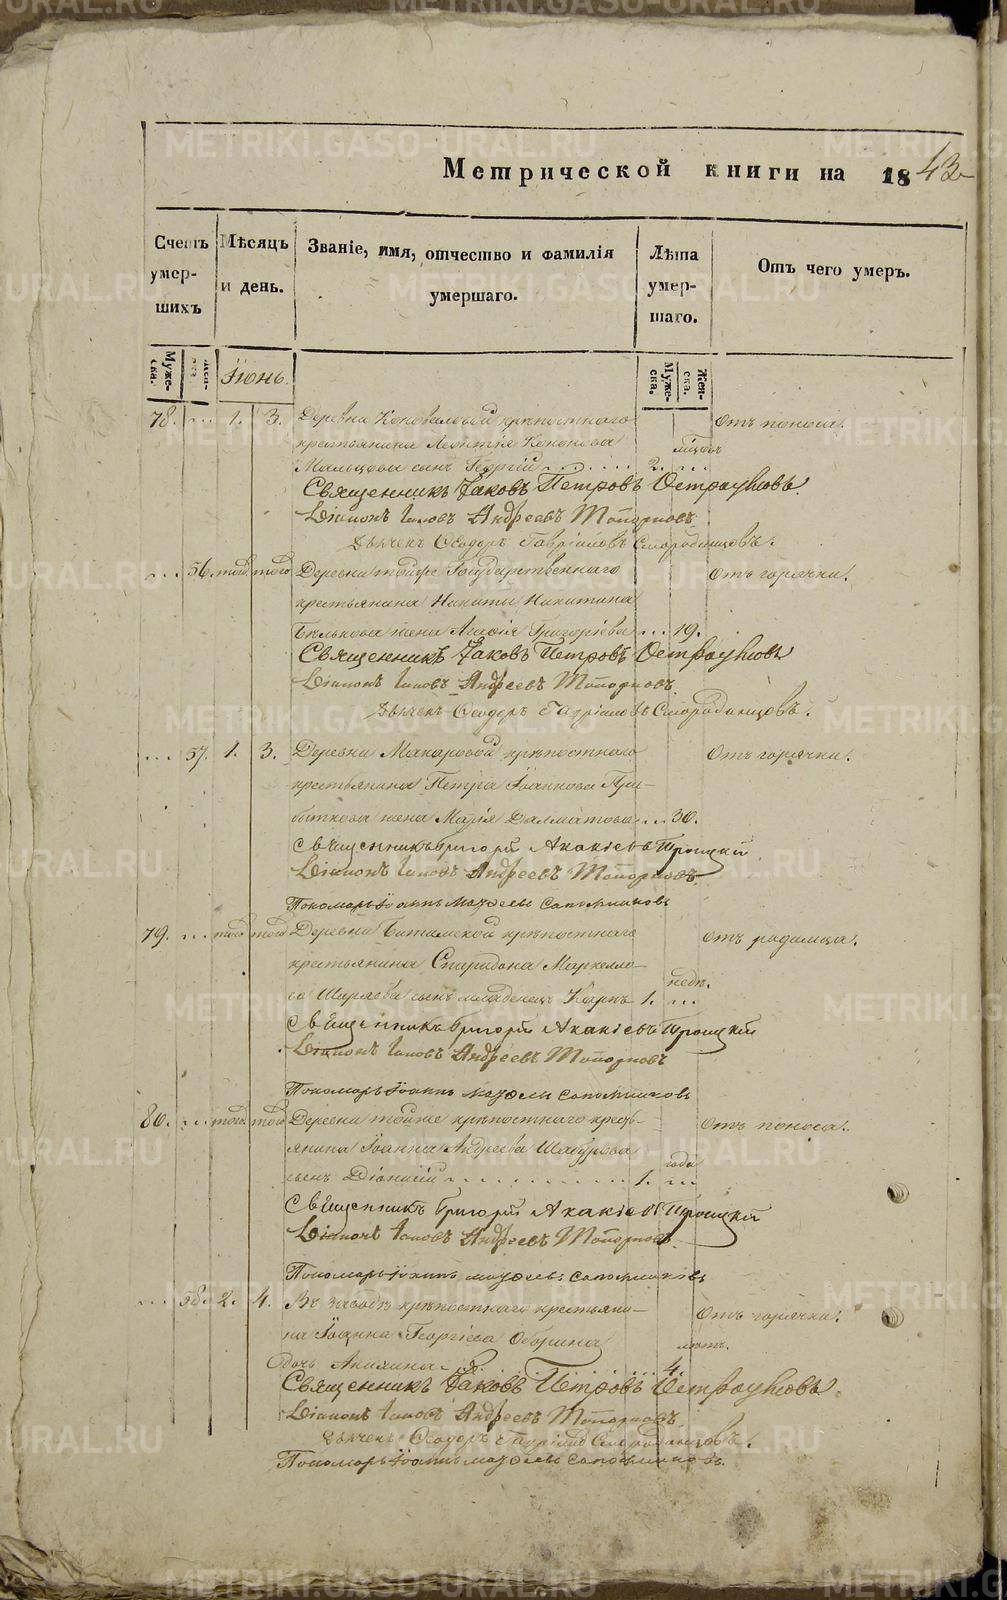 Метрической книги на 1843
Счетъ умер- шихъ
Мѣсяцъ и день.
Званіе, имя, отчество и фамилія умершаго.
Лѣта умер- шаго.
Отъ чего умеръ.
Муже- ска.
Жен- ска.
Іюнь.
Муже- ска.
Жен- ска.
78. ... 1. 3. Деревни Коноваловой крѣпостнаго Отъ поноса.
крестьянина Леонтія Кононова мѣсяц.
Мальцова сынъ Георгій 2. ...
Священникъ Іаковъ Петровъ Остроумовъ.
Діаконъ Іаковъ Андреевъ Топорковъ
Дьячекъ Ѳеодоръ Гавріиловъ Смородинцовъ.
... 56. того того Деревни тойже Государственнаго Отъ горячки.
крестьянина Никиты Никитина
Бѣлькова жена Агафія Григоріева ... 19.
Священникъ Іаковъ Петровъ Остроумовъ
Діаконъ Іаковъ Андреевъ Топорковъ
Дьячекъ Ѳеодоръ Гавріиловъ Смородинцовъ.
... 57. 1. 3. Деревни Макаровой крѣпостнаго Отъ горячки.
крестьянина Петра Іоаннова При-
биткова жена Марія Далматова ... 30.
Священникъ Григорій Акакіевъ Троицкій
Діаконъ Іаковъ Андреевъ Топорковъ
Пономарь Іоаннъ Моѵсеевъ Сапожниковъ
79. ... того того Деревни Битимской крѣпостнаго Отъ родимца.
крестьянина Спиридона Маркелло-
ва Ширяева сынъ младенецъ Карпъ 1. недѣ. ...
Священникъ Григорій Акакіевъ Троицкій
Діаконъ Іаковъ Андреевъ Топорковъ
Пономарь Іоаннъ Моѵсеевъ Сапожниковъ
80. ... того того Деревни тойже крѣпостнаго кресть- Отъ поноса.
янина Іоанна Андреева Шабурова года
сынъ Діонисій 1. ...
Священникъ Григорій Акакіевъ Троицкій
Діаконъ Іаковъ Андреевъ Топорковъ
Пономарь Іоаннъ Моѵсеевъ Сапожниковъ
... 58. 2. 4. Въ заводѣ крѣпостнаго крестьяни- Отъ горячки.
на Іоанна Георгіева Оборина лѣт.
дочь Акилина 4.
Священникъ Іаковъ Петровъ Остроумовъ.
Діаконъ Іаковъ Андреевъ Топорковъ.
Дьячекъ Ѳеодоръ Гавріиловъ Смородинцовъ.
Пономарь Іоаннъ Моѵсеевъ Сапожниковъ.
METRIKI.GASO-URAL.RU